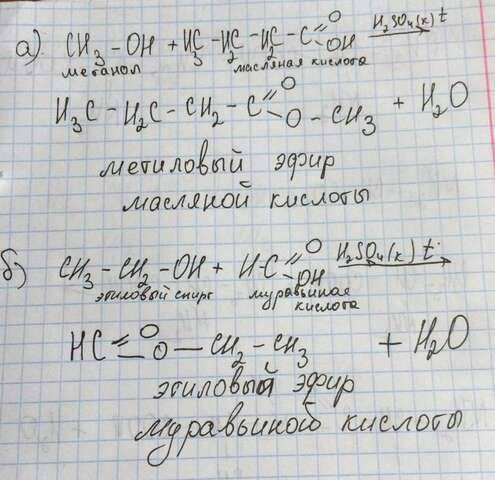 а) CH3 – OH + H3C – H2C – H2C – C=O OH H2SO4(к) t →
метанол масляная кислота
H3C – H2C – CH2 – C=O O – CH3 + H2O
метиловый эфир
масляной кислоты
б) CH3 – CH2 – OH + H-C=O OH H2SO4(к) t →
этиловый спирт муравьиная
кислота
HC=O O – CH2 – CH3 + H2O
этиловый эфир
муравьиной кислоты